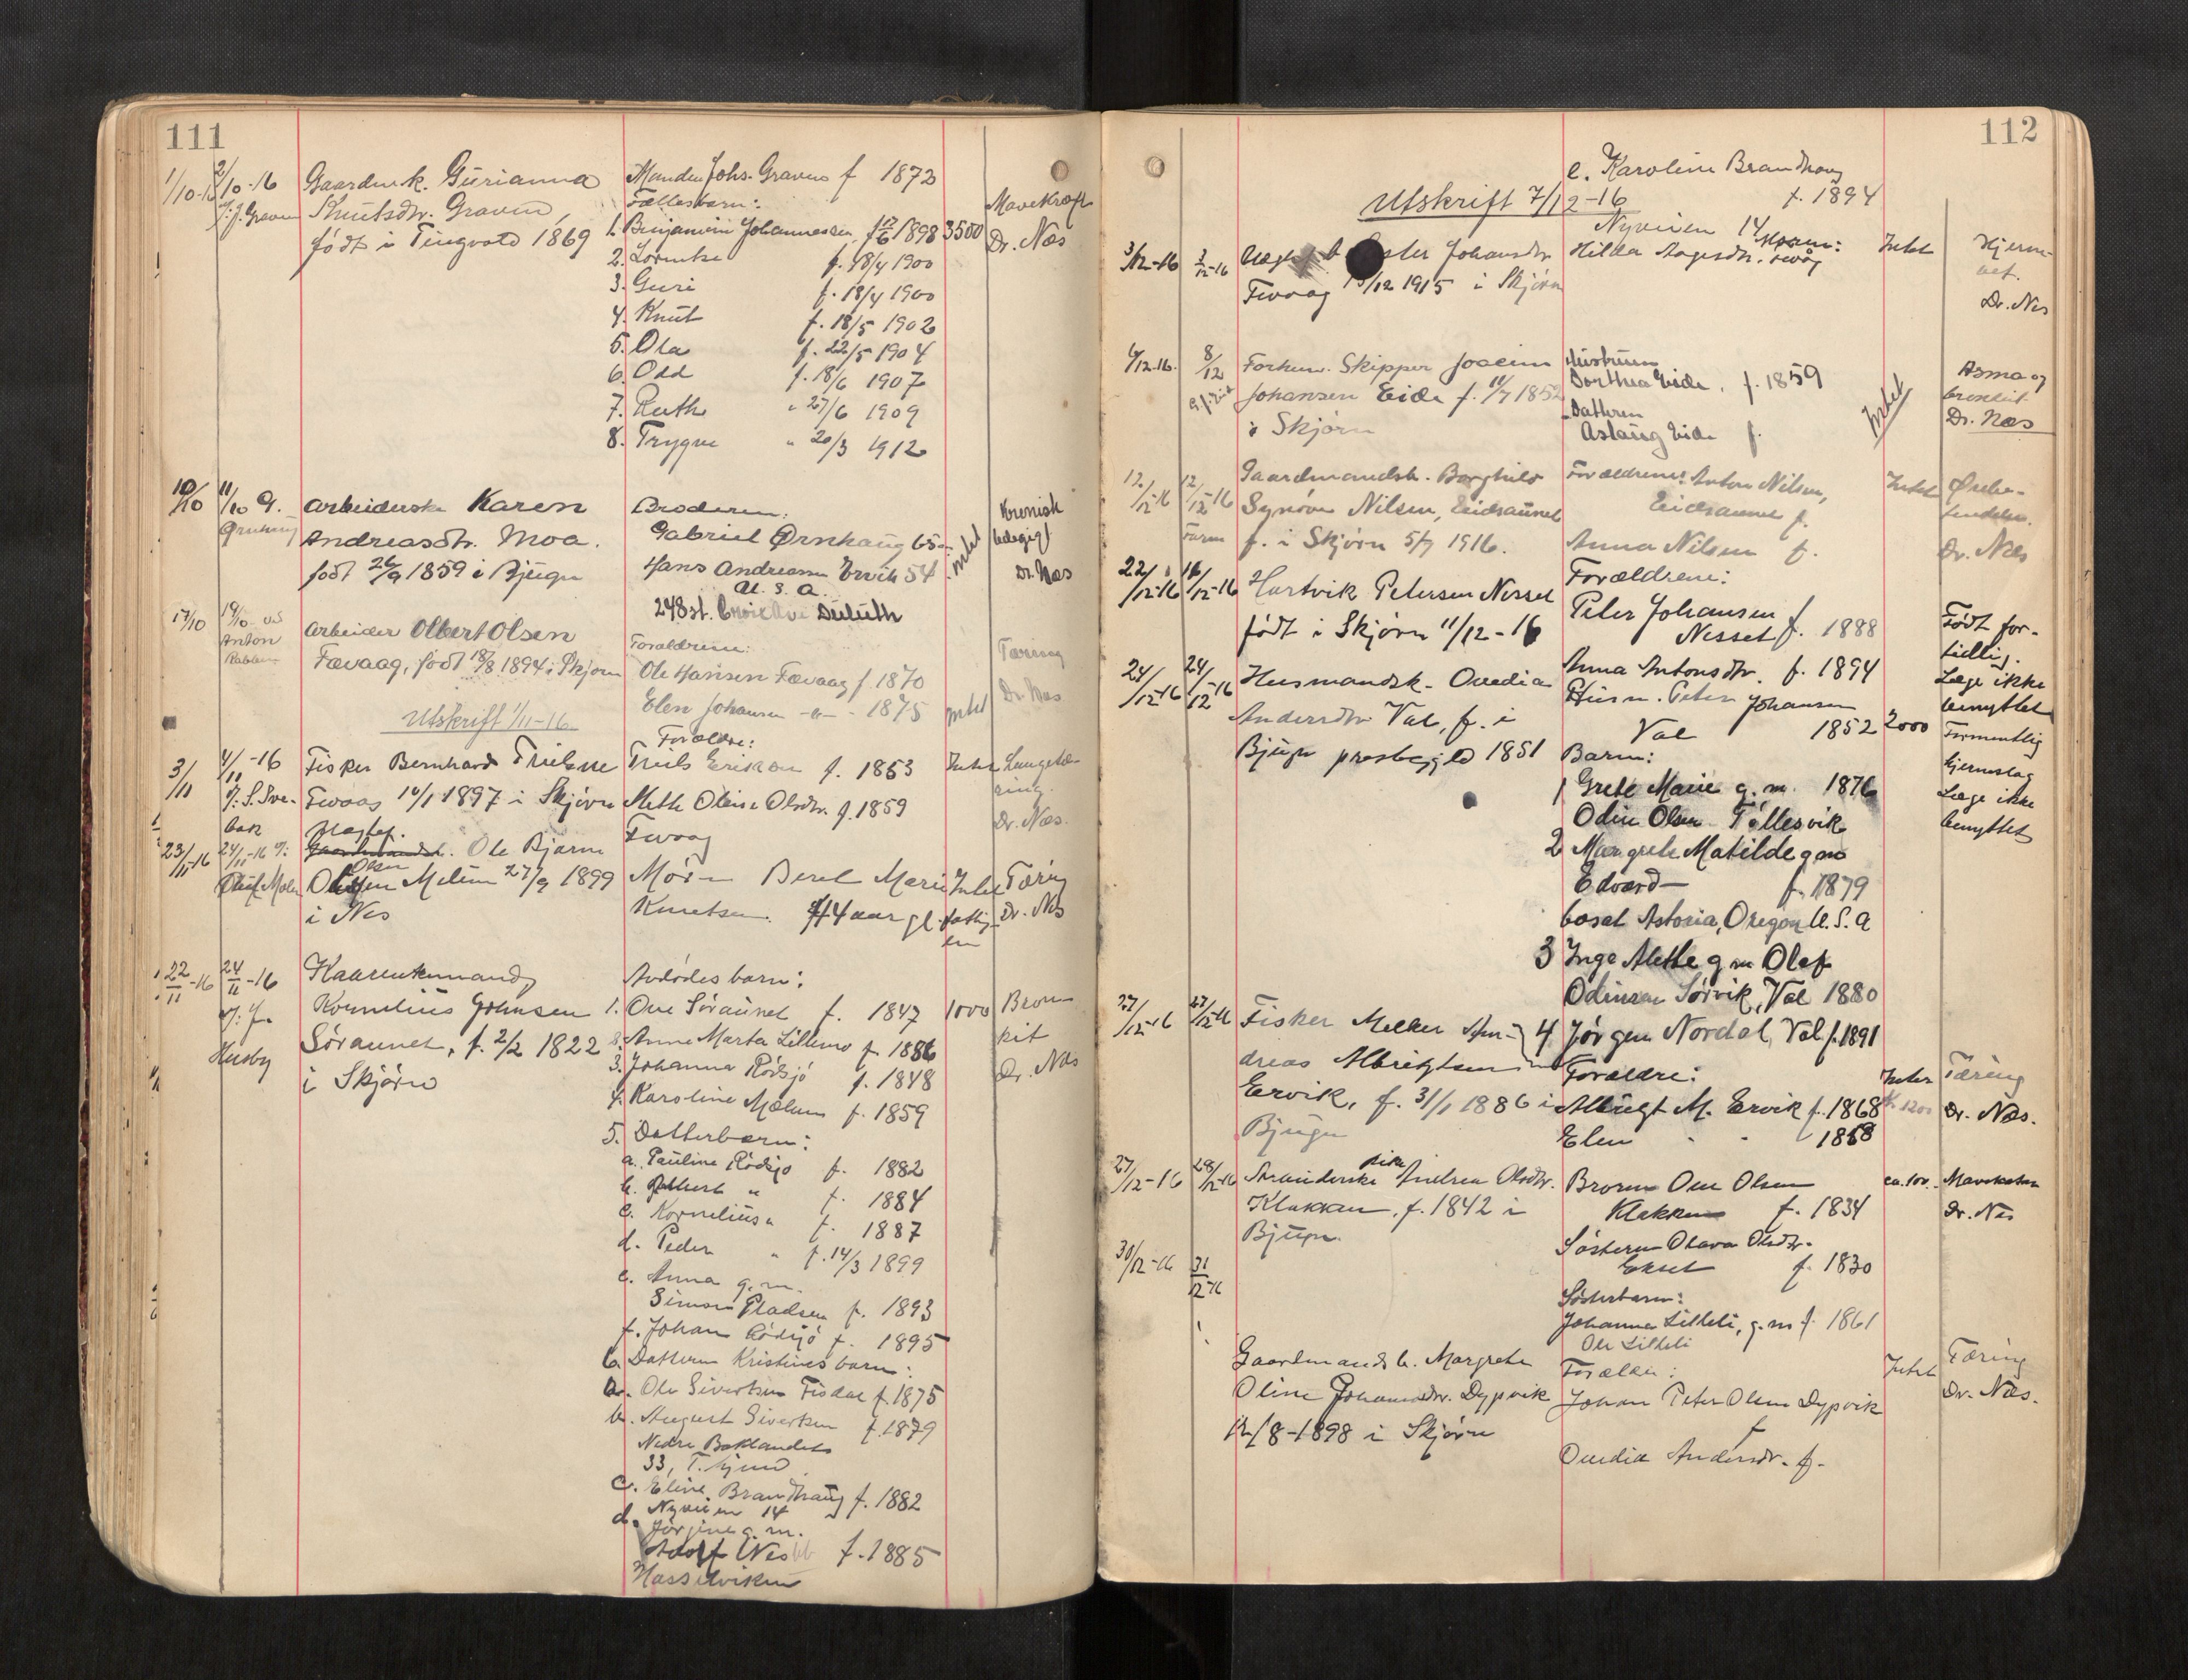 111
1/10-16 2/10-16 Gaardmk. Gurianna
v: J. Graven Knutsdtr. Graven,
født i Tingvold 1869
Manden Johs. Graven f 1873
Fællesbarn:
1. Benjamin Johannessen f 17/6 1898 3500
2. Lorentse f. 18/4 1900
3. Guri f. 18/4 1900
4. Knut f. 18/5 1902
5. Ola f. 22/5 1904
6. Odd f. 18/6 1907
7. Ruth " 27/6 1909
8. Trygve " 20/3 1912
Mavekræft
Dr. Næs
10/10 11/10 G. Arbeiderske Karen
Andreasdtr. Moa.
født 26/9 1859 i Bjugn
Broderen:
Gabriel Ørnhaug 65
Hans Andreasen Ervik 54
U. S. A.
248 st. Duluth
Intet
Kronisk
Dr. Næs
17/10 19/10
Anton
Arbeider Olbert Olsen
Fævaag, født 18/8 1894 i Skjørn
Forældrene:
Ole Hansen Fævaag f 1870
Elen Johansen -"- - 1875
Intet
Tæring
Dr. Næs
Utskrift 1/11-16
3/11 4/11-16 Fisker Bernhard Trulsen
Fevaag 10/1 1897 i Skjørn
Forældre:
Truls Eriksen f. 1853
Meth Oleise Olsdtr. f. 1859
Fevaag
Intet
Lungetæ-
ring.
Dr. Næs.
23/11-16 24/11-16 v:
Ole Bjarne
Olsen Melum 27/9 1899
i Nes
Mor Beret Marie
Knutsen. 44 aar gl.
Intet
Tæring
Dr. Næs
22/11-16 24/11-16 Kaarenkemand
Kornelius Johnsen
Søraunet, f. 2/2 1822
i Skjørn
v: J.
Husby
Avdødes barn:
1. Ove Søraunet f. 1847 1000
2. Anne Marta Lillemo f. 1886
3. Johanna Rødsjø f. 1848
4. Karoline Mælum f. 1859
5. Datterbarn:
a. Pauline Rødsjø f. 1882
b. Albert " f. 1884
c. Kornelius " f. 1887
d. Peder " f. 14/3 1899
e. Anna g. m.
Simon Pladsen f. 1893
f. Johan Rødsjø f. 1895
6. Datteren Kristines barn:
a. Ole Sivertsen Fisdal f. 1875
b. August Sivertsen f. 1879
Nedre Baklandet
33, T.hjem
c. Eline Brandhaug f. 1882
Nyveien 14
d. Jørgine g. m.
Adolf Nesbb f. 1885
Hasselviken
Bron
kit
Dr. Næs
112
e. Karoline Brandhaug
f. 1894
Nyveien 14
Utskrift 7/12-16
3/12-16 3/12-16 Johansdtr.
Fevaag /12 1915 i Skjørn
Moren:
Hilda Aagesdtr.
Intet
Hjerne-
Dr. Næs
6/12-16. 8/12 Forhenv. Skipper Joacim
Johansen Eide f. 11/7 1852
i Skjørn
Hustruen
Dorthea Eide. f. 1859
Datteren
Aslaug Eide f.
Intet
Asma og
bronkit
Dr. Næs
12/12-16 12/12-16 Gaardmandsb. Borghild
Synøve Nilsen, Eidsaunet
f. i Skjørn 5/9 1916.
Forældrene: Anton Nilsen,
Eidsaunet f.
Anna Nilsen f.
Intet
Dr. Næs
22/12-16 16/12-16 Hartvik Petersen Nesset
født i Skjørn 11/12-16
Forældrene:
Peter Johansen
Nesset f. 1888
Anna Antonsdtr. f. 1894
Født for-
tidlig.
Læge ikke
benyttet
24/12-16 24/12-16 Husmandsk. Ovedia
Andersdtr Val, f. i
Bjugn prestegjeld 1851
Husm. Peter Johansen
Val 1852 2000
Barn:
1 Grete Marie g. m. 1876
Odin Olsen Tøllesvik
2 Margrete Matilde g m
Edvard— f. 1879
bosat Astoria, Oregon U. S. A
3 Inge Alethe g m Olaf
Odinsen Sørvik, Val 1880
4 Jørgen Nordal, Val f. 1891
Formentlig
hjerneslag
Læge ikke
benyttet
27/12-16 27/12-16 Fisker Melker An-
dreas Albrigtsen
Ervik, f. 31/1 1886 i
Bjugn
Forældre:
Albrigt M. Ervik f. 1868
Elen " " 1858
Intet
Tæring
Dr. Næs.
27/12-16 28/12-16 pike Andrea Olsdtr.
Klakken, f. 1842 i
Bjugn.
Broren Ove Olsen
Klakken f. 1834
Søsteren Olava Olsdtr.
f. 1830
Søsterbarn:
Johanna Lilleli, g. m f. 1861
Ole Lilleli
ca. 100.-
Dr. Næs
30/12-16 31/12-16
Gaardmands b. Margrete
Oline Johansdtr. Dypvik
12/8-1898 i Skjørn
Forældre:
Johan Peter Olsen Dypvik
f
Ovedia Andersdtr. f.
Intet
Tæring
Dr. Næs.